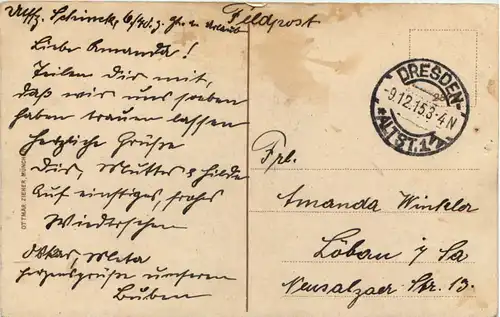 Uffz. Schinck, 6/40. z. Zt. in Urlaub
Feldpost
Liebe Amanda!
Teilen Dir mit,
daß wir uns soeben
haben trauen lassen
Herzliche Grüße
Dir, Mutter & Hilde
Auf einstiges, frohes
Wiedersehen
Oskar, Meta
Herzensgrüße unseren
Buben
OTTMAR ZIEHER, MÜNCH
DRESDEN-
-9.12.15.3-4N
*ALTST.1
Frl.
Amanda Winkler
Löbau i/Sa
Neusalzaer Str. 13.